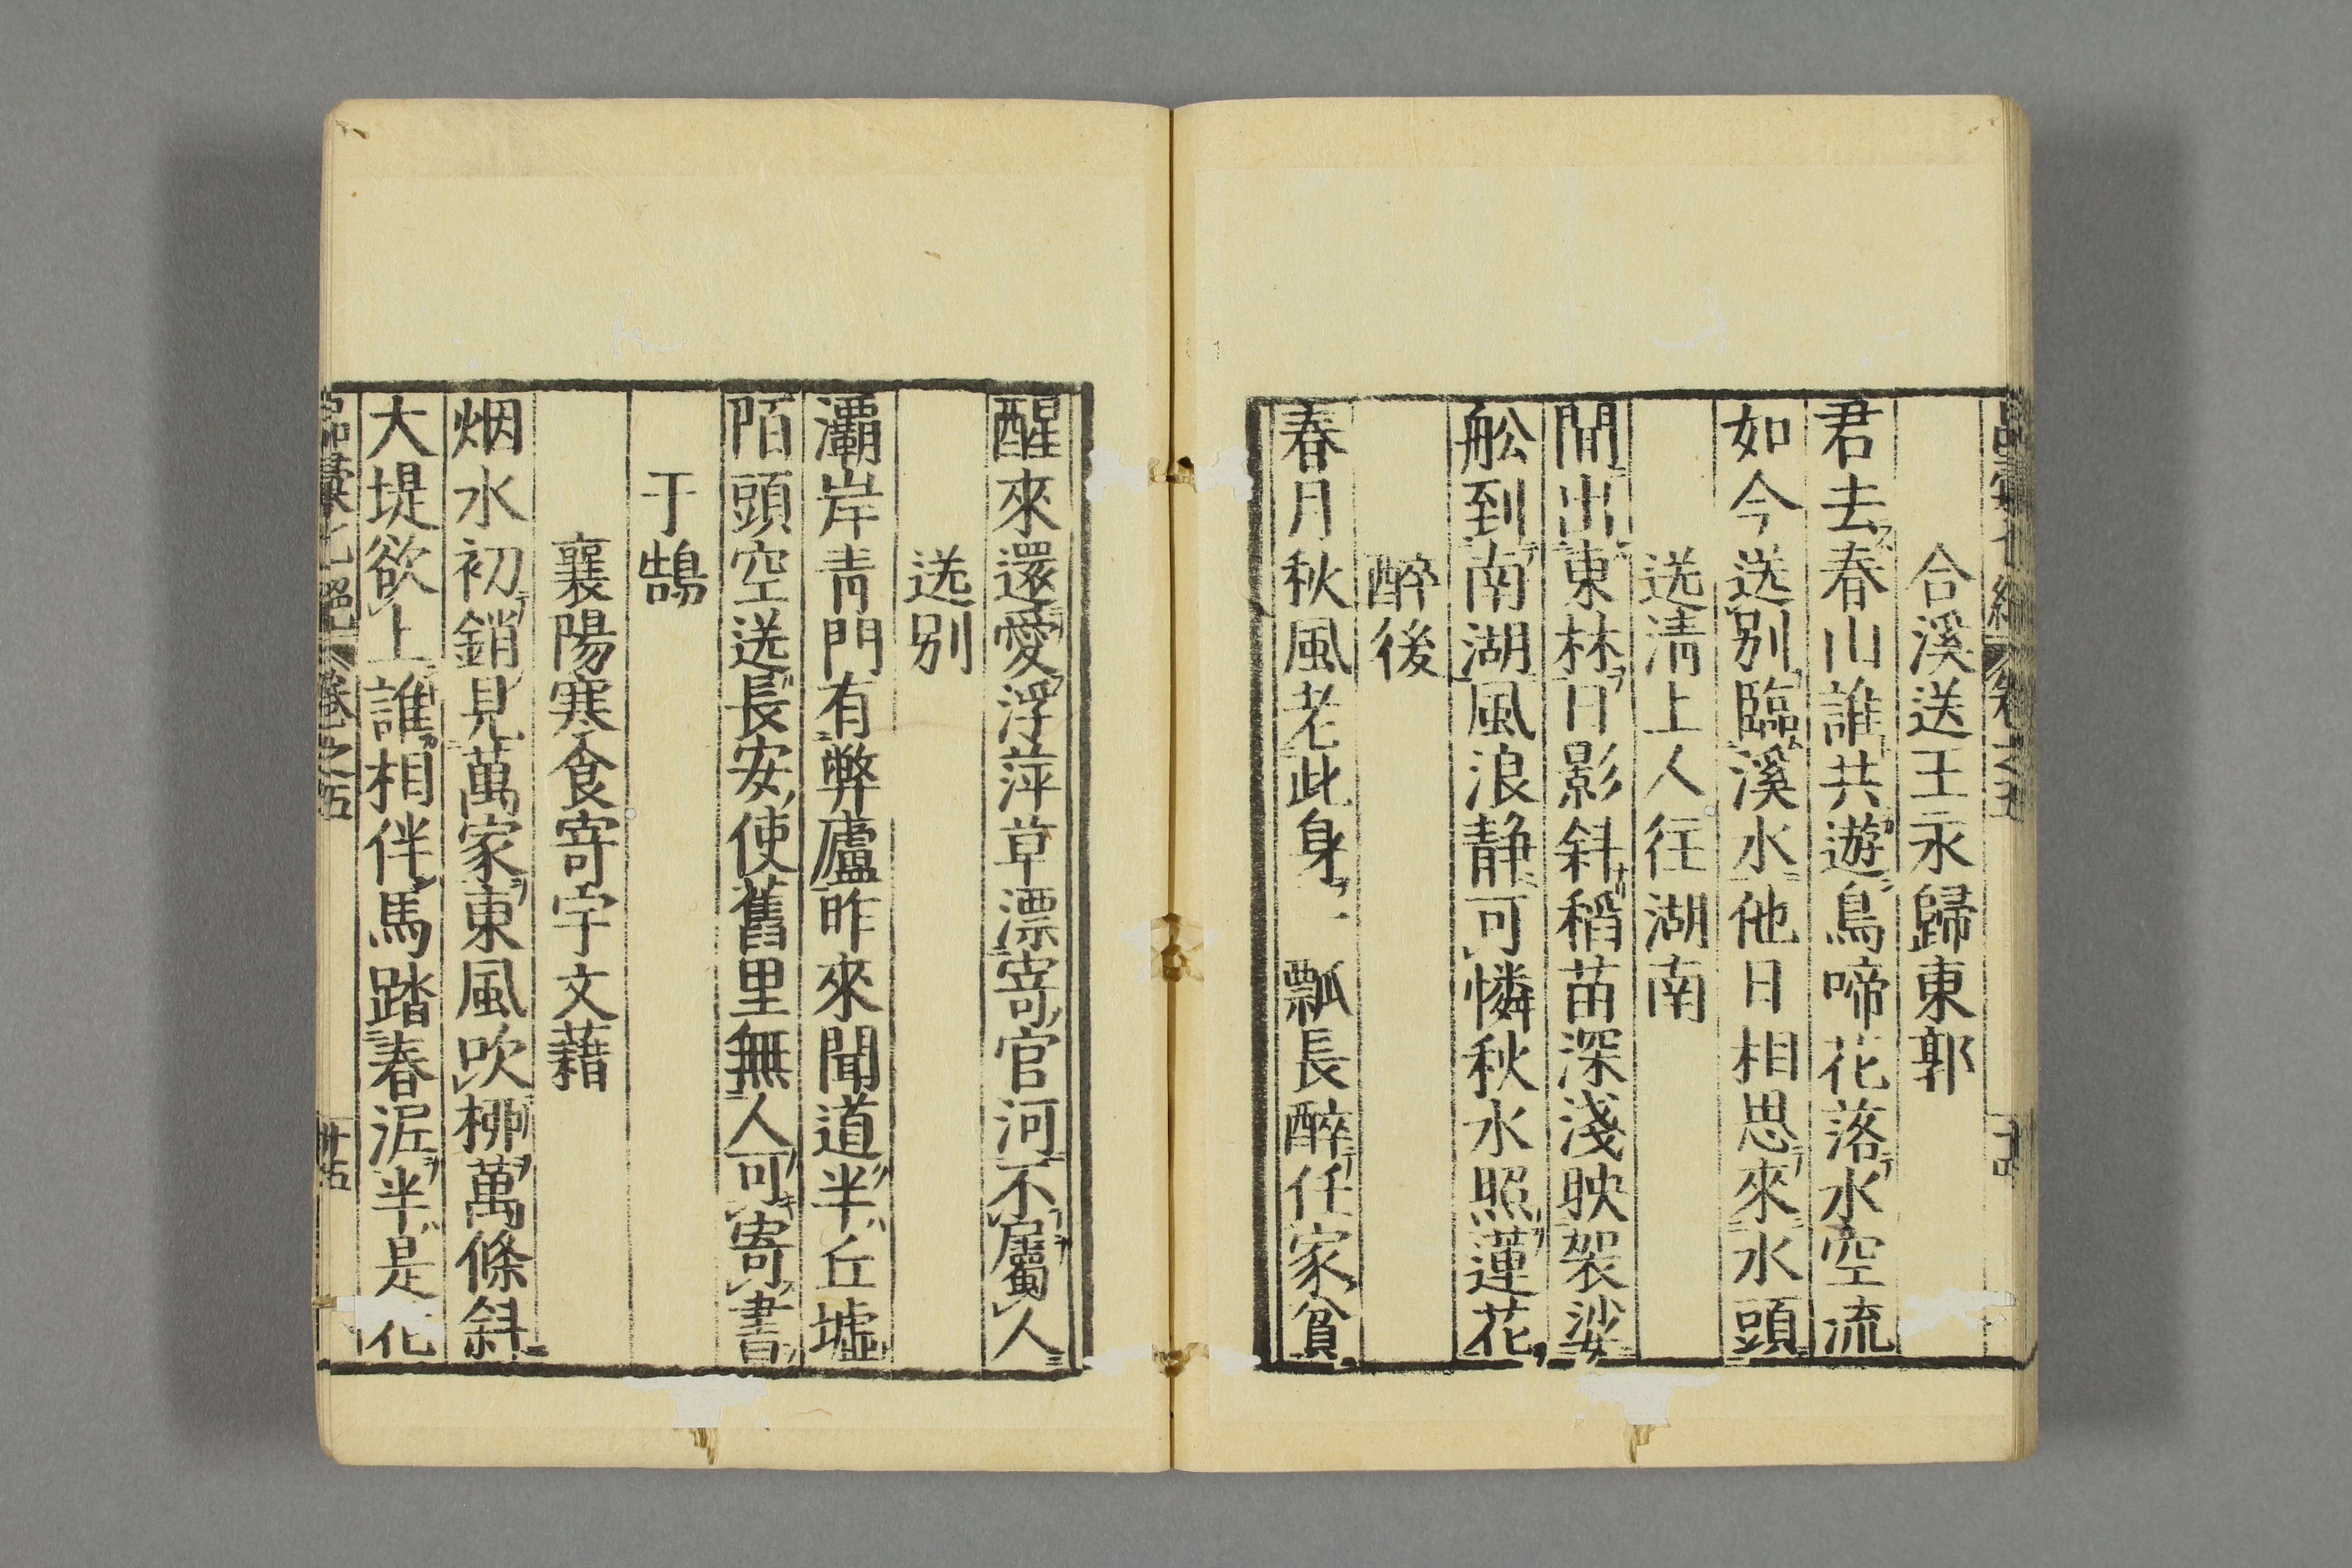 合溪送王永歸東郭
君去春山誰共遊鳥啼花落水空流
如今送別臨溪水他日相思來水頭
送清上人往湖南
閒出東林日影斜稻苗深淺映袈裟
舩到南湖風浪静可憐秋水照蓮花
醉後
春月秋風老此身一瓢長醉任家貧
醒來還愛浮萍草漂寄官河不屬人
送別
灞岸青門有弊廬昨來聞道半丘墟
陌頭空送長安使舊里無人可寄書
于鵠
襄陽寒食寄宇文藉
烟水初銷見萬家東風吹柳萬條斜
大堤欲上誰相伴馬踏春泥半是花
品彙七絕 卷之五 廿五